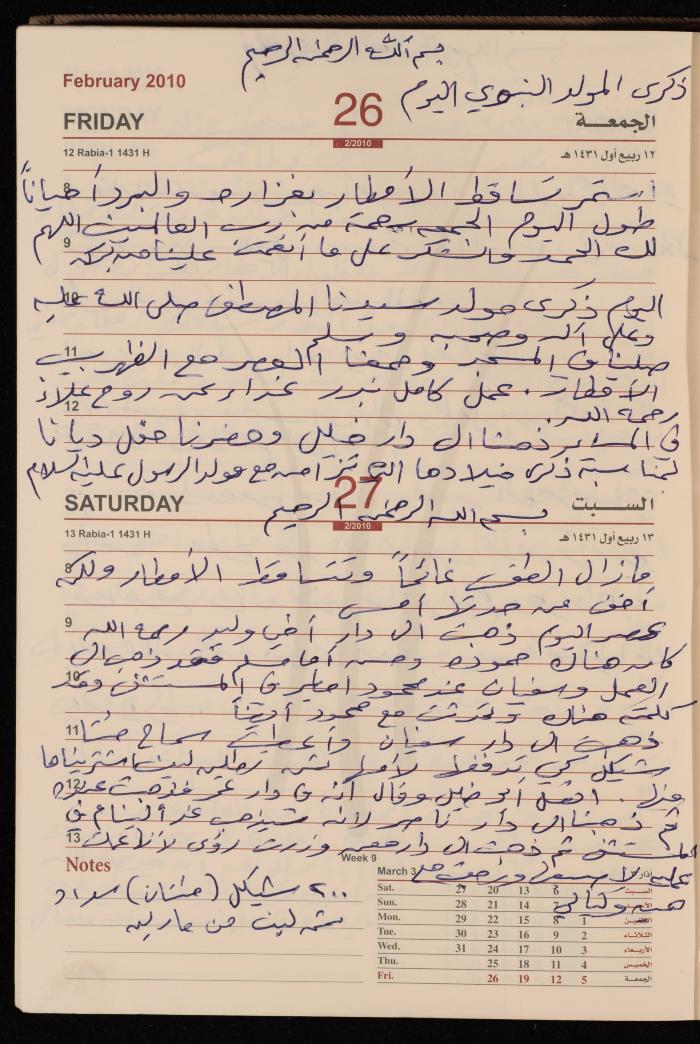 بسم الله الرحمن الرحيم
February 2010
ذكرى المولد النبوي اليوم
FRIDAY
26
الجمعة
2/2010
12 Rabia-1 1431 H
١٢ ربيع أول ١٤٣١ هـ
استمر تساقط الأمطار بغزارة والبرد أحياناً
8
طول اليوم الجمعة رحمة من رب العالمين اللهم
لك الحمد والشكر على ما أنعمت علينا من بركة
9
اليوم ذكرى مولد سيدنا المصطفى صلى الله عليه
10
وعلى آله وصحبه وسلم
صلينا في المسجد وجمعنا العصر مع الظهر بسبب
11
الأمطار . عمل كامل بدر غداء عن روح علاء
12
رحمه الله .
في المساء ذهبنا الى دار خليل وحضرنا حفل ديانا
بمناسبة ذكرى ميلادها الذي تزامن مع مولد الرسول عليه السلام
SATURDAY
27
السبت
2/2010
بسم الله الرحمن الرحيم
13 Rabia-1 1431 H
١٣ ربيع أول ١٤٣١ هـ
ما زال الطقس غائماً وتتساقط الأمطار ولكن
8
أخف من
أمس
عصر اليوم ذهبت الى دار أخي وليد رحمه الله
9
كان هناك حموده وحسن أما مسلم فقد ذهب الى
10
العمل وسفيان عند محمود
في المستشفى وقد
كلمته هناك وتحدثت مع محمود أيضاً
11
ذهبت الى دار سفيان وأعطيت سماح
شيكل كي تدفعها لأمها ثمن
اشتريناها
12
منها . اتصل أبو خليل وقال أنه في دار عمر فذهبت عنده
ثم ذهبنا الى دار ناصر لأنه
13
المستشفى ثم ذهبت الى دار
وزرت رؤى لأن
Week 9
Notes
٢٠٠ شيكل (مئتان) سداد
من
March
اذار
Sat. 27 20 13 6 السبت
28 21 14 7
Mon. 29 22 15 8 1 الاثنين
Tue. 30 23 16 9 2 الثلاثاء
Wed. 31 24 17 10 3 الأربعاء
Thu. 25 18 11 4 الخميس
Fri. 26 19 12 5 الجمعة